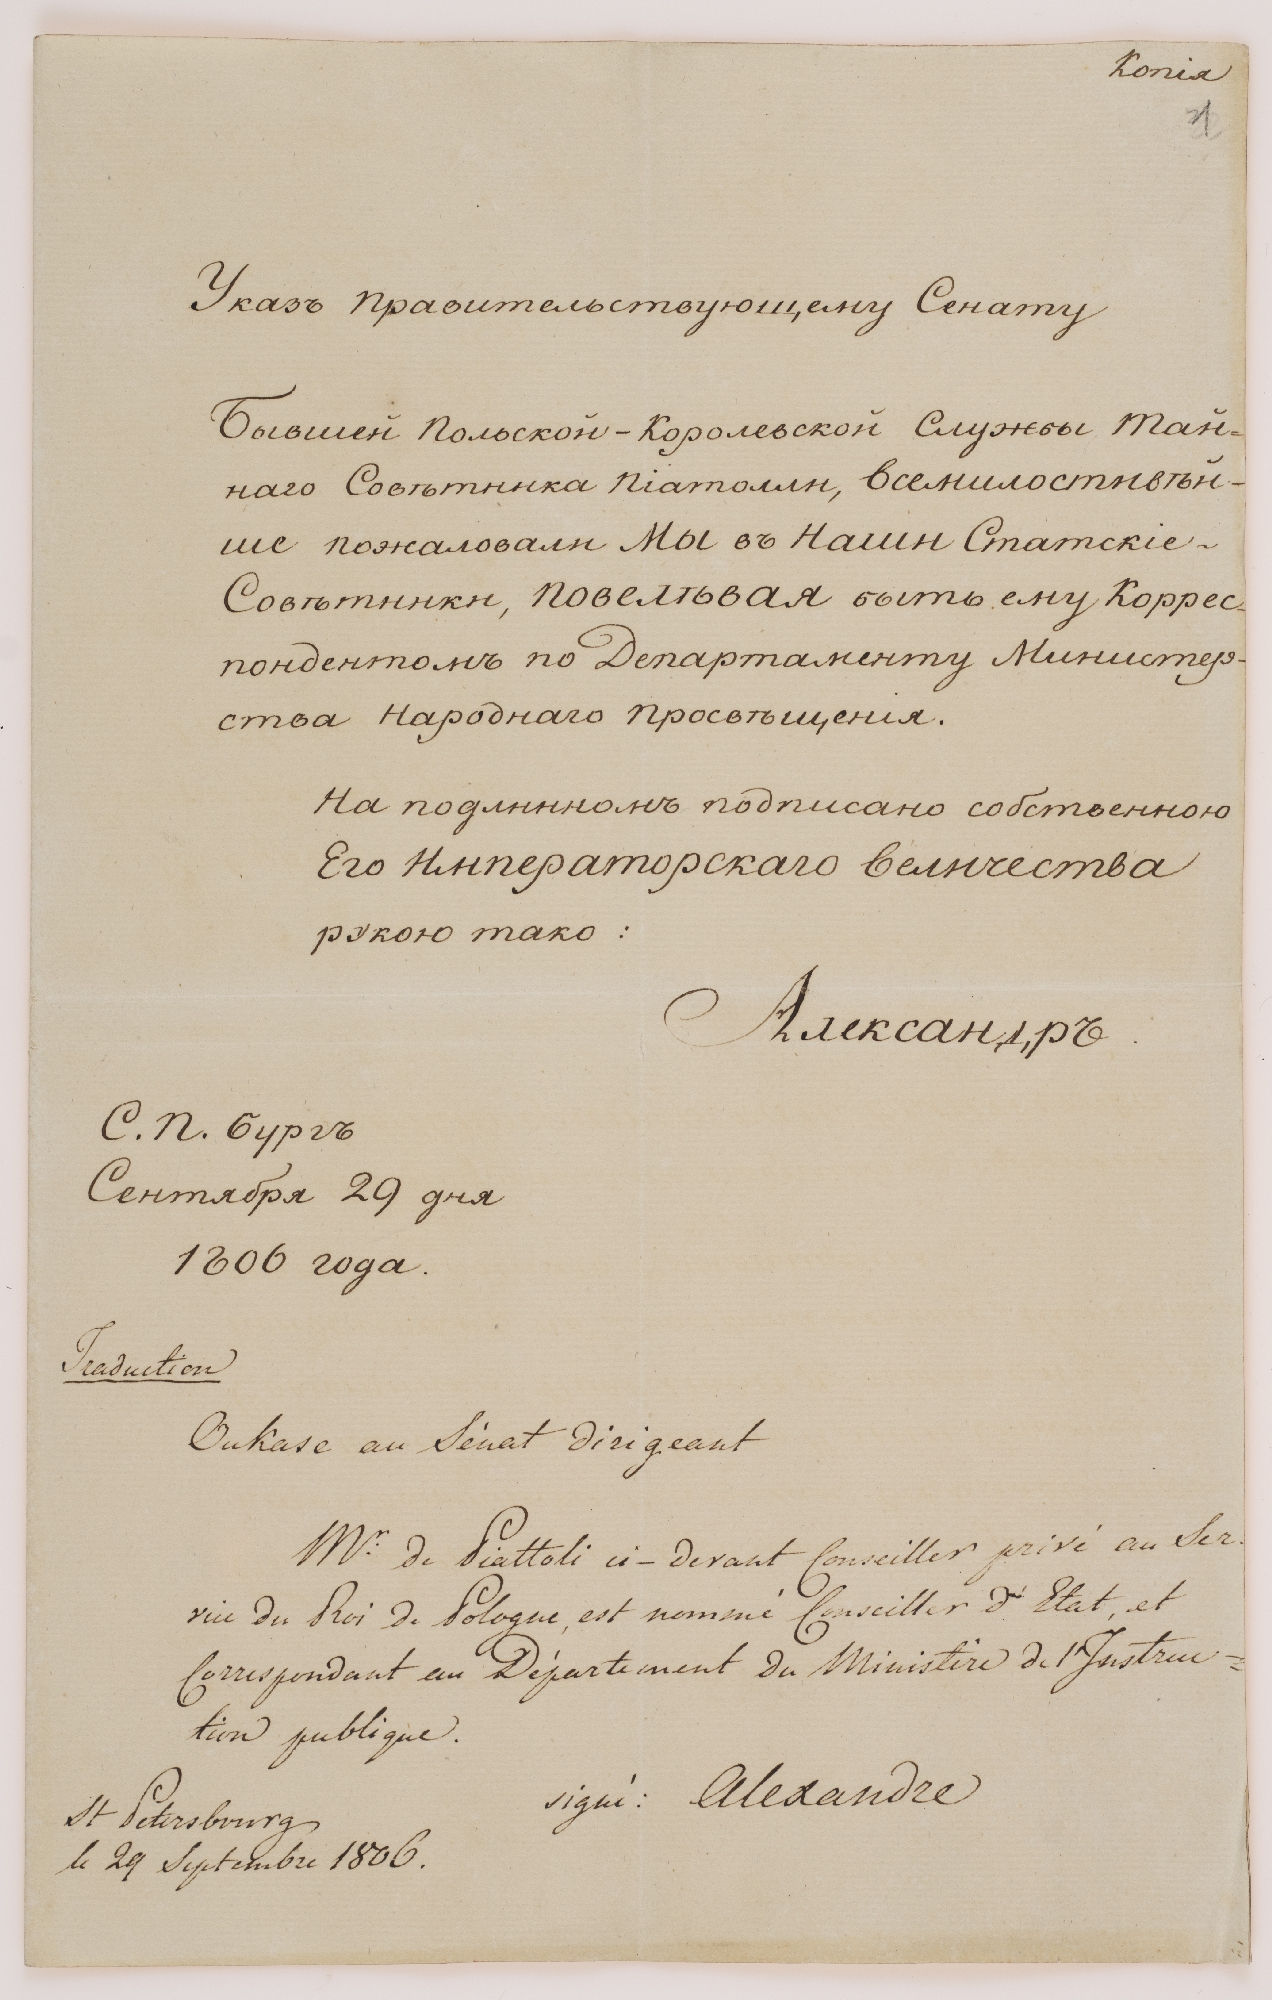 Копія
Указъ Правительствующему Сенату
Бывшей Польской-Королевской Службы Тай-
наго Совѣтника Піатолли, Всемилостивѣй-
ше пожаловали Мы въ Наши Статскіе-
Совѣтники, Повелѣвая быть ему Коррес-
пондентомъ по Департаменту Министер-
ства Народнаго Просвѣщенія.
На подлинномъ подписано собственною
Его Императорскаго Величества
рукою тако:
Александръ
С.П. бургъ
Сентября 29 дня
1806 года.
Traduction
Oukase au Sénat dirigeant
Mr. de Piattoli ci-devant Conseiller privé au Ser-
vice du Roi de Pologne, est nommé Conseiller d'Etat, et
Correspondant au Département du Ministère de l'Instruc=
tion publique.
signé: Alexandre
St Petersbourg
le 29 Septembre 1806.